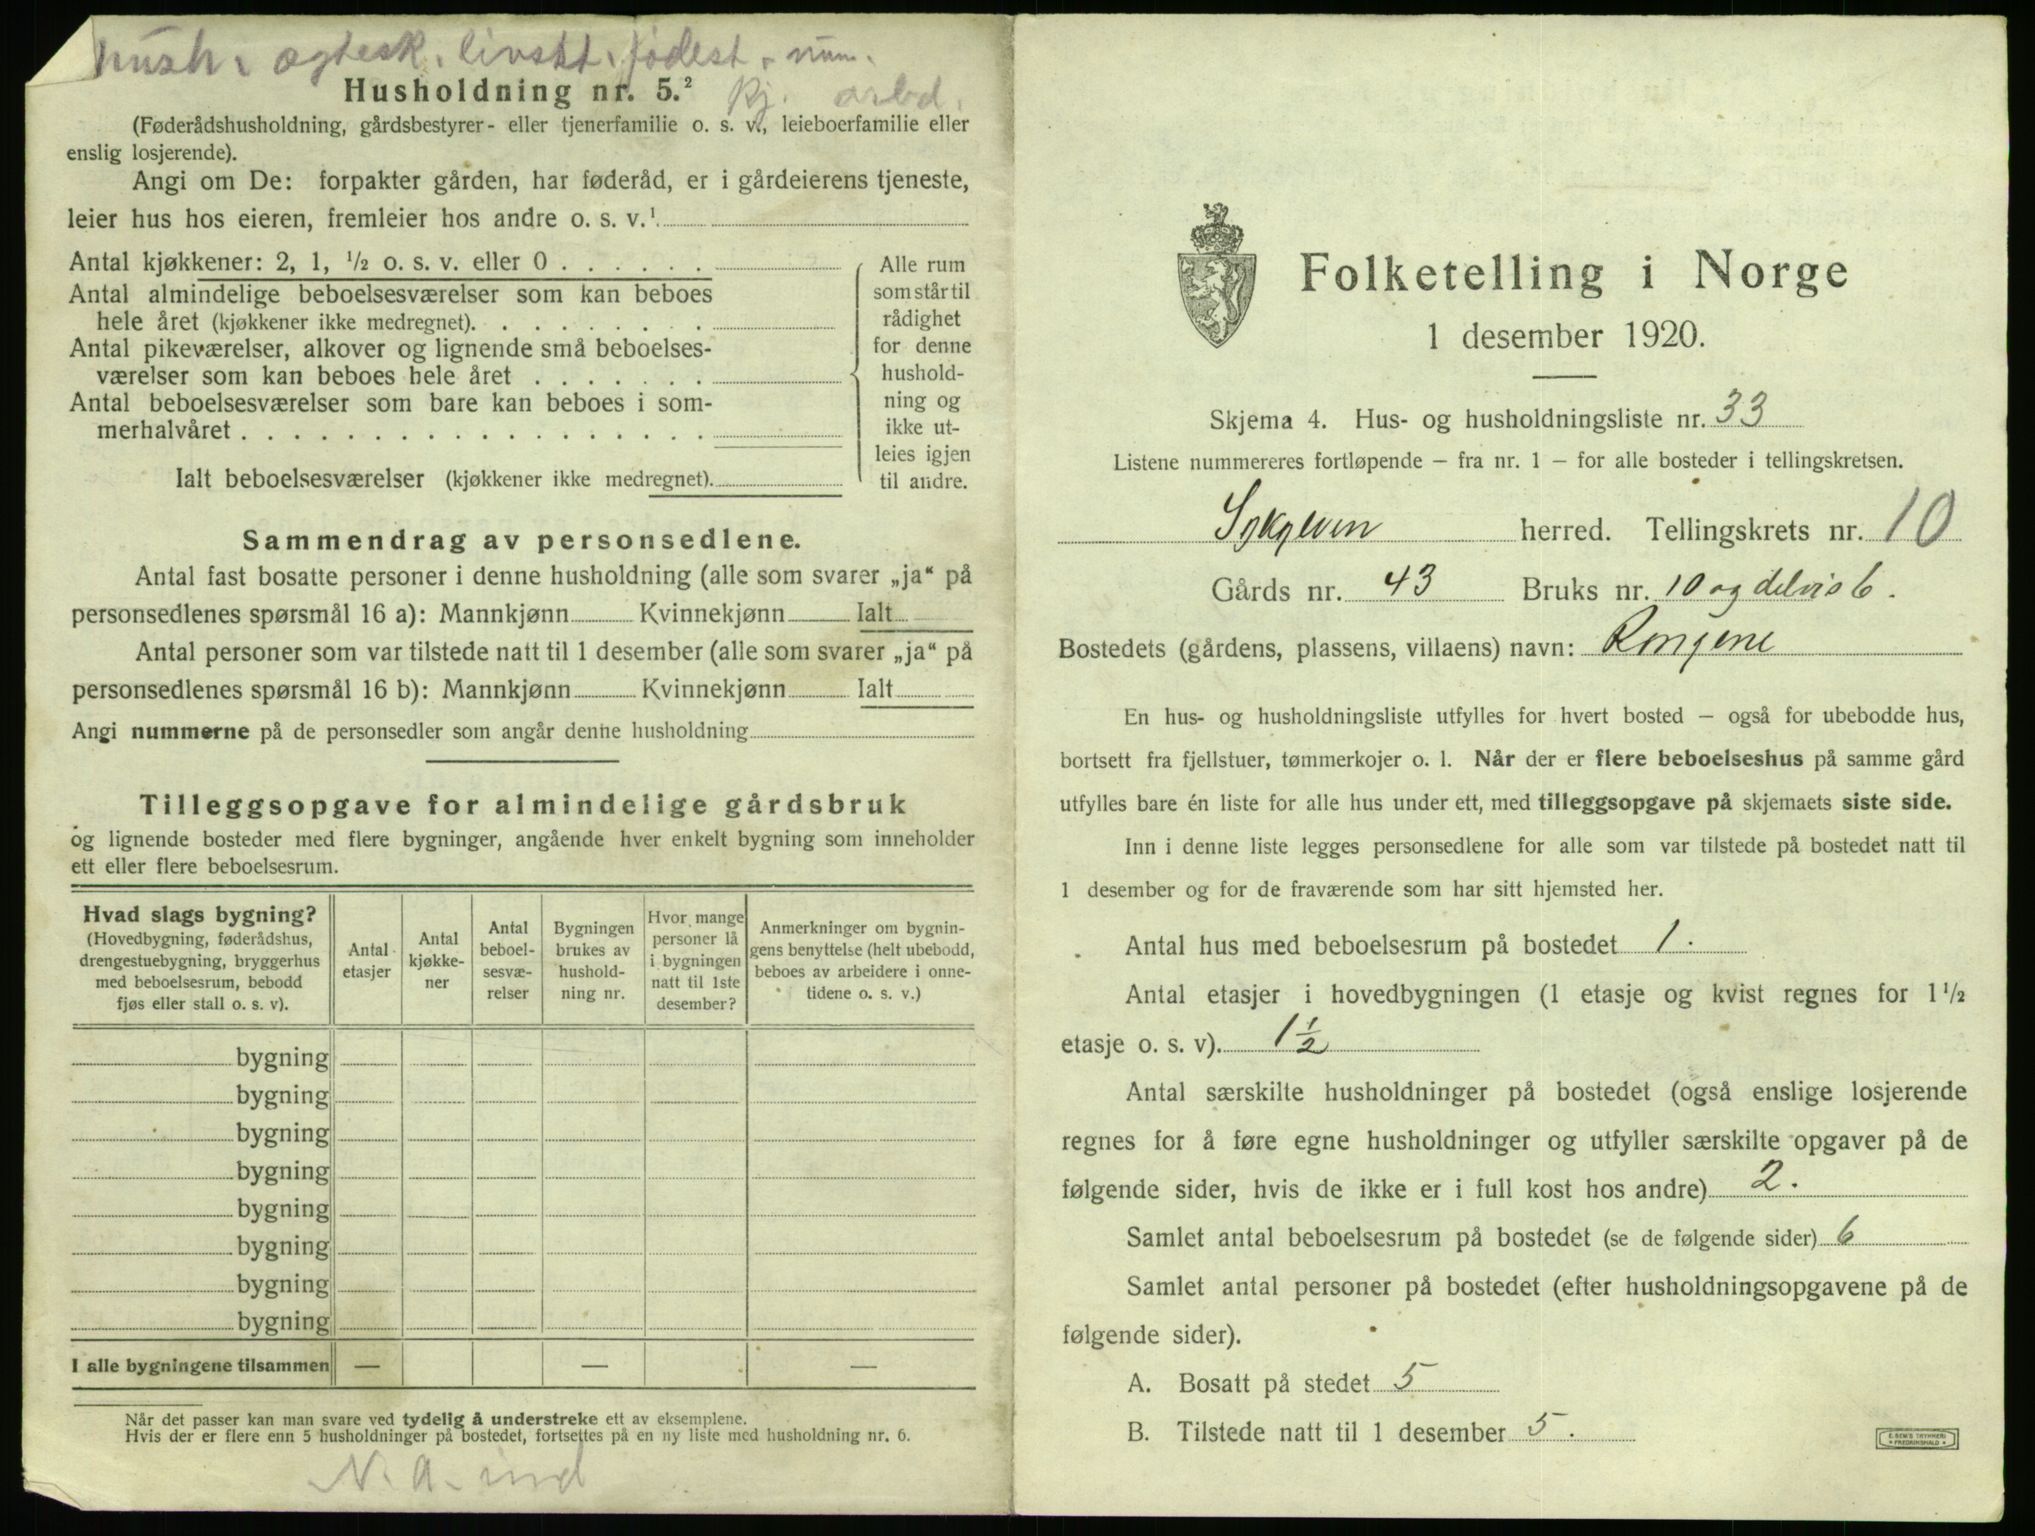 hush. ægtesk. livsst. fødest. num.
kj. arbd.
Husholdning nr. 5.²
(Føderådshusholdning, gårdsbestyrer- eller tjenerfamilie o. s. v., leieboerfamilie eller
enslig losjerende).
Angi om De: forpakter gården, har føderåd, er i gårdeierens tjeneste,
leier hus hos eieren, fremleier hos andre o. s. v.¹
Antal kjøkkener: 2, 1, ½ o. s. v. eller 0 . . . . . .
Antal almindelige beboelsesværelser som kan beboes
hele året (kjøkkener ikke medregnet). . . . . . . . .
Antal pikeværelser, alkover og lignende små beboelses-
værelser som kan beboes hele året . . . . . . .
Antal beboelsesværelser som bare kan beboes i som-
merhalvåret . . . . . . . . . . . . . . . . . .
Ialt beboelsesværelser (kjøkkener ikke medregnet).
Alle rum
som står til
rådighet
for denne
hushold-
ning og
ikke ut-
leies igjen
til andre.
Sammendrag av personsedlene.
Antal fast bosatte personer i denne husholdning (alle som svarer „ja“ på
personsedlenes spørsmål 16 a): Mannkjønn Kvinnekjønn Ialt
Antal personer som var tilstede natt til 1 desember (alle som svarer „ja“ på
personsedlenes spørsmål 16 b): Mannkjønn Kvinnekjønn Ialt
Angi nummerne på de personsedler som angår denne husholdning
Tilleggsopgave for almindelige gårdsbruk
og lignende bosteder med flere bygninger, angående hver enkelt bygning som inneholder
ett eller flere beboelsesrum.
Hvad slags bygning?
(Hovedbygning, føderådshus,
drengestuebygning, bryggerhus
med beboelsesrum, bebodd
fjøs eller stall o. s. v).
Antal
etasjer
Antal
kjøkke-
ner
Antal
beboel-
sesvæ-
relser
Bygningen
brukes av
hushold-
ning nr.
Hvor mange
personer lå
i bygningen
natt til 1ste
desember?
Anmerkninger om bygnin-
gens benyttelse (helt ubebodd,
beboes av arbeidere i onne-
tidene o. s. v.)
bygning
bygning
bygning
bygning
bygning
bygning
bygning
bygning
I alle bygningene tilsammen — — —
Når det passer kan man svare ved tydelig å understreke ett av eksemplene.
Hvis der er flere enn 5 husholdninger på bostedet, fortsettes på en ny liste med husholdning nr. 6.
N. A. ind
Folketelling i Norge
1 desember 1920.
Skjema 4. Hus- og husholdningsliste nr. 33
Listene nummereres fortløpende – fra nr. 1 – for alle bosteder i tellingskretsen.
Sykylven herred. Tellingskrets nr. 10
Gårds nr. 43 Bruks nr. 10 og delvis 6.
Bostedets (gårdens, plassens, villaens) navn:
En hus- og husholdningsliste utfylles for hvert bosted – også for ubebodde hus,
bortsett fra fjellstuer, tømmerkojer o. l. Når der er flere beboelseshus på samme gård
utfylles bare én liste for alle hus under ett, med tilleggsopgave på skjemaets siste side.
Inn i denne liste legges personsedlene for alle som var tilstede på bostedet natt til
1 desember og for de fraværende som har sitt hjemsted her.
Antal hus med beboelsesrum på bostedet 1.
Antal etasjer i hovedbygningen (1 etasje og kvist regnes for 1½
etasje o. s. v). 1½
Antal særskilte husholdninger på bostedet (også enslige losjerende
regnes for å føre egne husholdninger og utfyller særskilte opgaver på de
følgende sider, hvis de ikke er i full kost hos andre) 2.
Samlet antal beboelsesrum på bostedet (se de følgende sider) 6
Samlet antal personer på bostedet (efter husholdningsopgavene på de
følgende sider).
A. Bosatt på stedet 5
B. Tilstede natt til 1 desember 5.
E. SEM'S TRYKKERI
FREDRIKSHALD